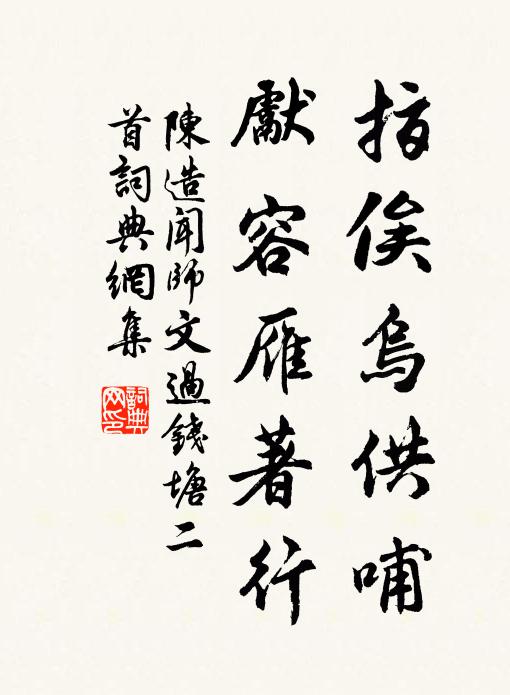 指俟烏供哺
獻容雁著行
陳造聞師文過錢塘二
首詞典網集
詞典
网印